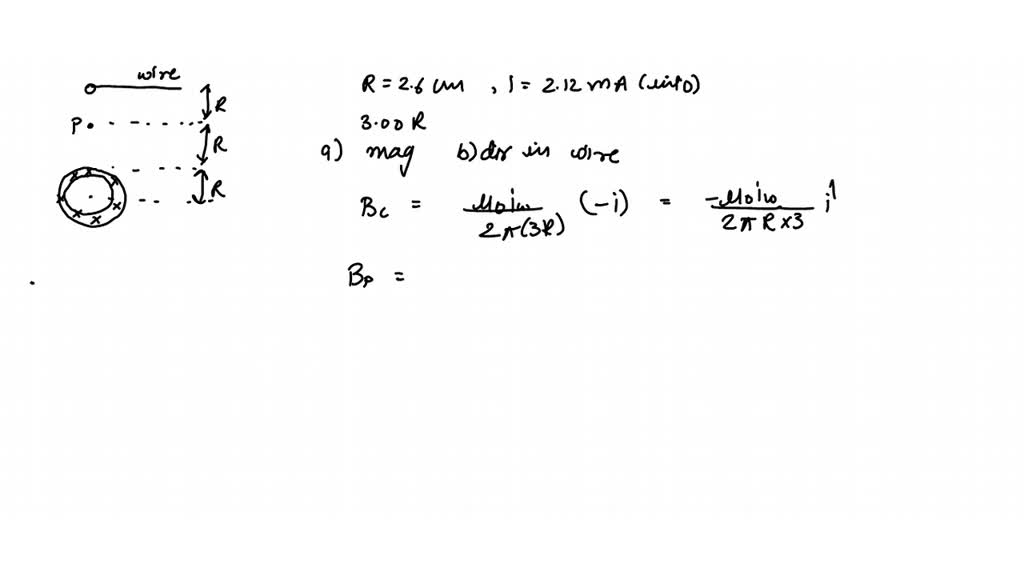 wire
R
P
R
R
R = 2.6 cm , i = 2.12 mA (into)
3.00 R
a) mag b) dir in wire
Bc = μ0iw / 2π(3R) (-i) = -μ0iw / 2πR×3 î
Bp =